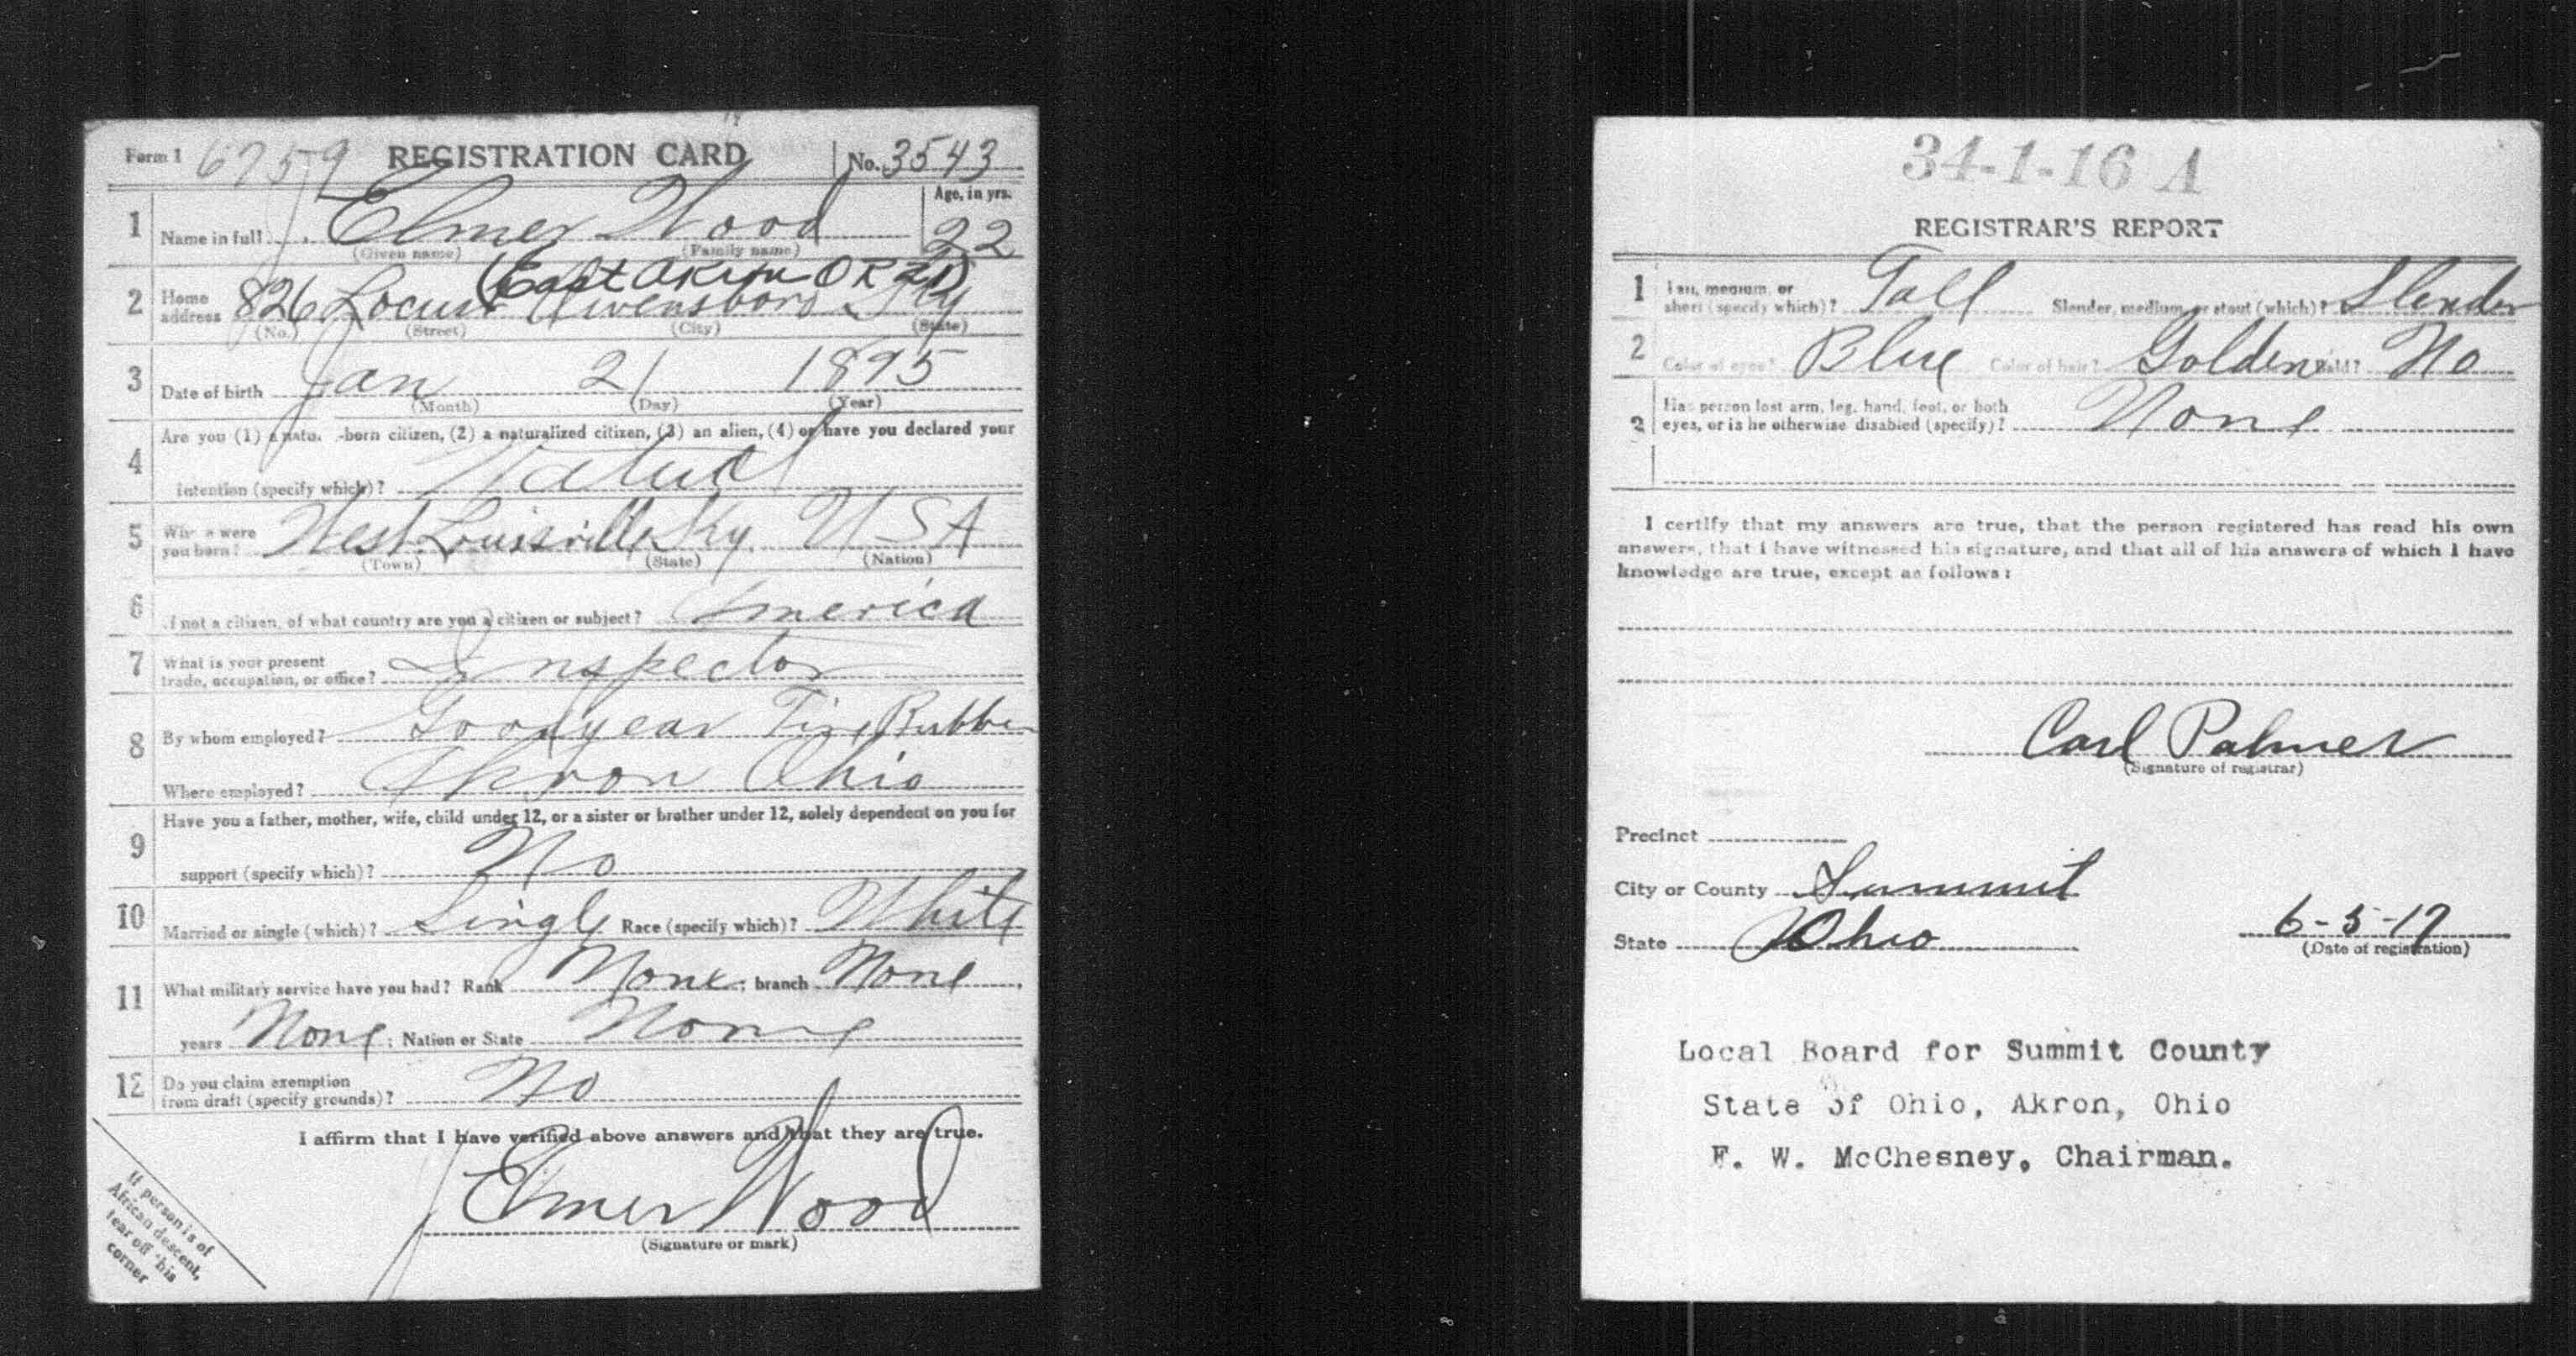 Form 1 6759 REGISTRATION CARD No. 3543
1 Name in full Elmer Wood Age, in yrs. 22
(Given name) (Family name)
(East Akron
2 Home address 826 Locust Owensboro Ky
(No.) (Street) (City) (State)
3 Date of birth Jan 21 1895
(Month) (Day) (Year)
Are you (1) a natu -born citizen, (2) a naturalized citizen, (3) an alien, (4) or have you declared your
4 intention (specify which)?
5 Where were you born? West Louisville Ky. USA
(Town) (State) (Nation)
6 If not a citizen, of what country are you a citizen or subject? America
7 What is your present trade, occupation, or office? Inspector
8 By whom employed? Goodyear Tire Rubber
Where employed? Akron Ohio
Have you a father, mother, wife, child under 12, or a sister or brother under 12, solely dependent on you for
9 support (specify which)? No
10 Married or single (which)? Single Race (specify which)? White
11 What military service have you had? Rank None; branch None
years None; Nation or State None
12 Do you claim exemption from draft (specify grounds)? No
I affirm that I have verified above answers and that they are true.
Elmer Wood
(Signature or mark)
If person is of
African descent,
tear off this
corner
34-1-16 A
REGISTRAR'S REPORT
1 Tall, medium, or short (specify which)? Tall Slender, medium, or stout (which)? Slender
2 Color of eyes? Blue Color of hair? Golden Bald? No
3 Has person lost arm, leg, hand, foot, or both eyes, or is he otherwise disabled (specify)? None
I certify that my answers are true, that the person registered has read his own
answers, that I have witnessed his signature, and that all of his answers of which I have
knowledge are true, except as follows:
Carl Palmer
(Signature of registrar)
Precinct
City or County Summit
State Ohio 6-5-17
(Date of registration)
Local Board for Summit County
State of Ohio, Akron, Ohio
F. W. McChesney, Chairman.